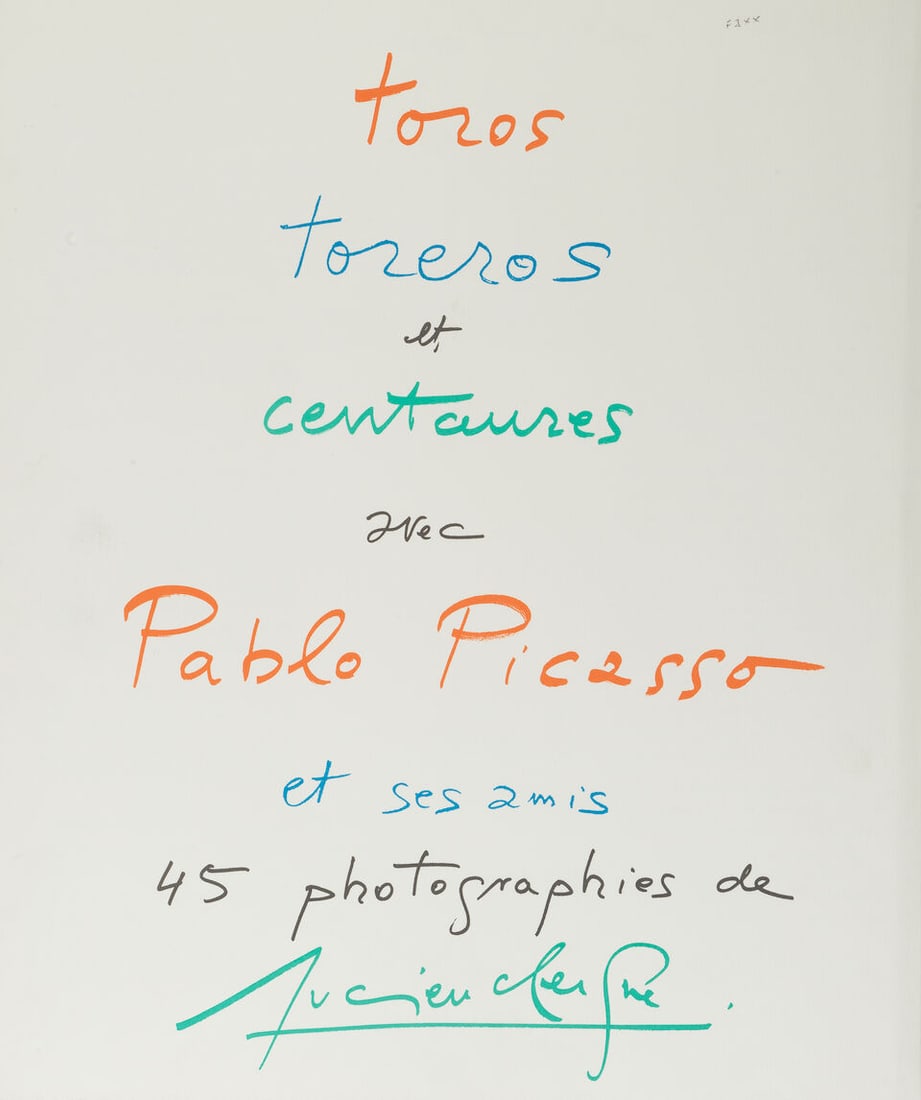 toros
toreros
et
centaures
avec
Pablo Picasso
et ses amis
45 photographies de
Lucien Clergue